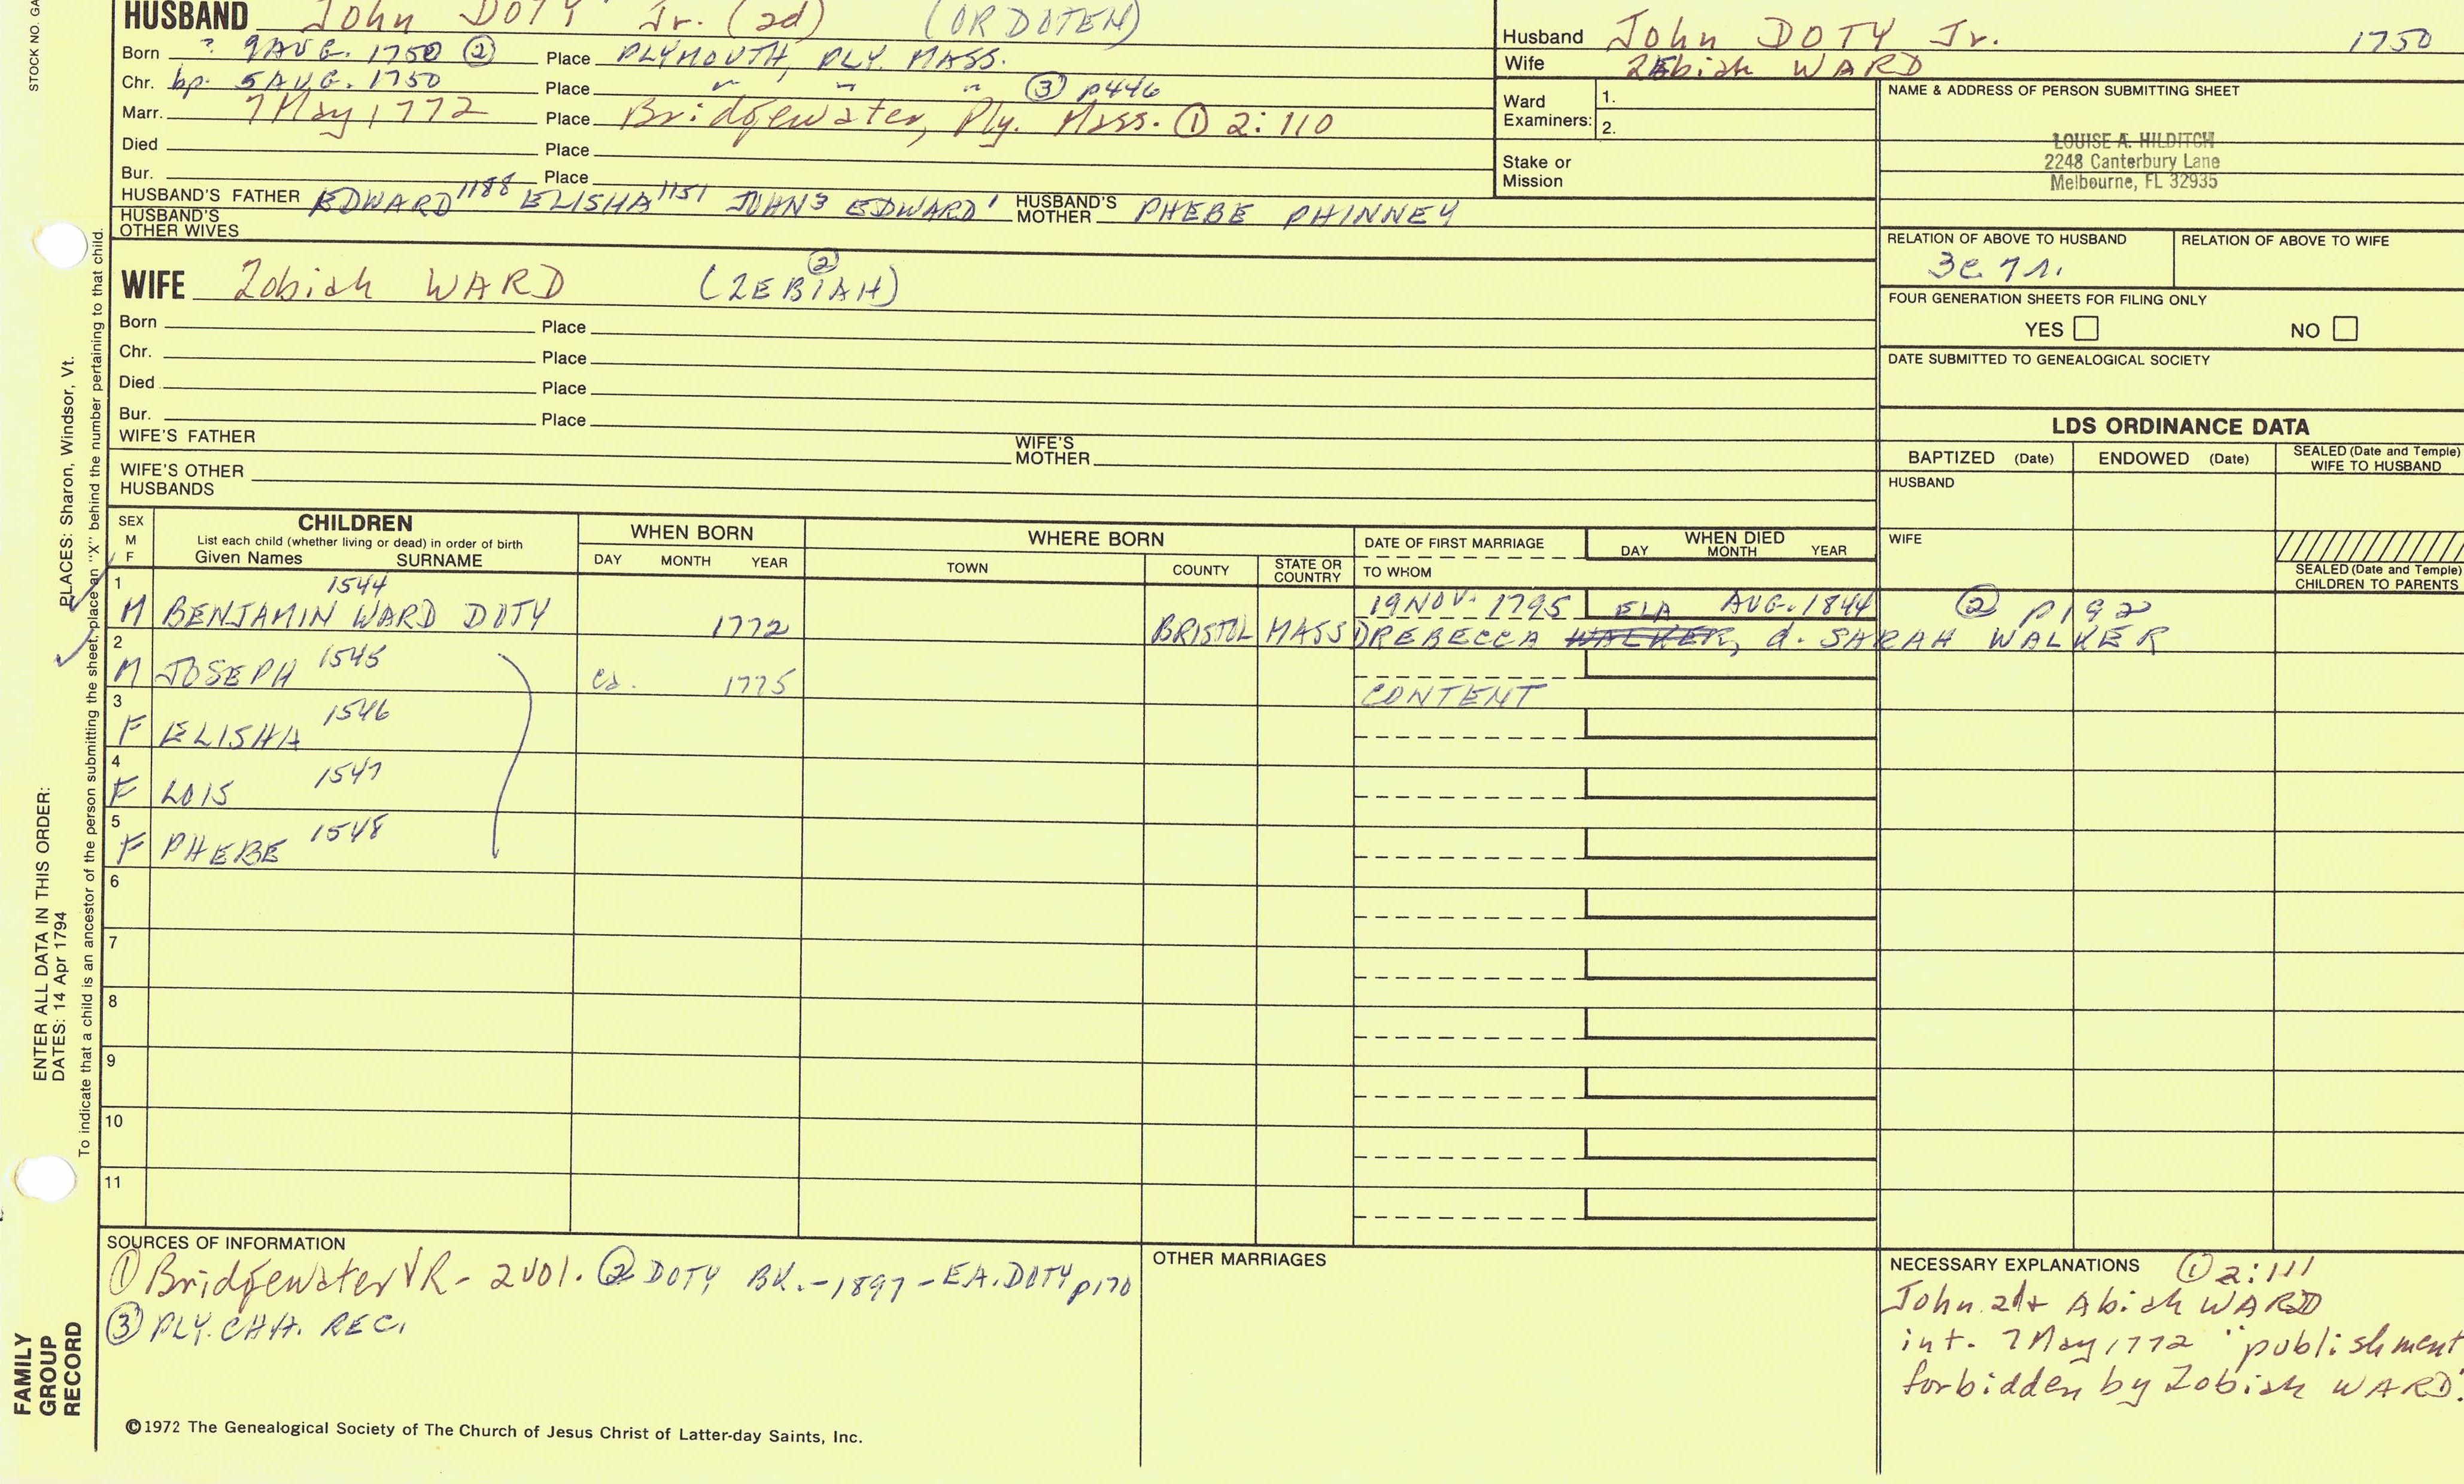 STOCK NO. GA
HUSBAND John DOTY Jr. (2d) (OR DOTEN)
Born ? 9 AUG. 1750 ② Place PLYMOUTH, PLY. MASS.
Chr. bp. 5 AUG. 1750 Place " " " ③ p446
Marr. 7 May 1772 Place Bridgewater, Ply. Mass. ① 2:110
Died Place
Bur. Place
HUSBAND'S FATHER EDWARD 1188 ELISHA 1151 JOHN 3 EDWARD 1 HUSBAND'S MOTHER PHEBE PHINNEY
HUSBAND'S OTHER WIVES
Husband John DOTY Jr. 1750
Wife ZEbiah WARD
Ward Examiners: 1.
2.
Stake or Mission
NAME & ADDRESS OF PERSON SUBMITTING SHEET
LOUISE A. HILDITCH
2248 Canterbury Lane
Melbourne, FL 32935
RELATION OF ABOVE TO HUSBAND RELATION OF ABOVE TO WIFE
FOUR GENERATION SHEETS FOR FILING ONLY
YES NO
DATE SUBMITTED TO GENEALOGICAL SOCIETY
WIFE Zobiah WARD (ZEBIAH) ②
Born Place
Chr. Place
Died Place
Bur. Place
WIFE'S FATHER WIFE'S MOTHER
WIFE'S OTHER HUSBANDS
LDS ORDINANCE DATA
BAPTIZED (Date) ENDOWED (Date) SEALED (Date and Temple) WIFE TO HUSBAND
HUSBAND
WIFE
SEALED (Date and Temple) CHILDREN TO PARENTS
SEX M F
CHILDREN
List each child (whether living or dead) in order of birth
Given Names SURNAME
WHEN BORN
DAY MONTH YEAR
WHERE BORN
TOWN COUNTY STATE OR COUNTRY
DATE OF FIRST MARRIAGE
TO WHOM
WHEN DIED
DAY MONTH YEAR
1 1544 19 NOV. 1795 AUG. 1844 ② p192
M BENJAMIN WARD DOTY 1772 BRISTOL MASS REBECCA WALKER, d. SARAH WALKER
2
M JOSEPH 1545 ca. 1775 CONTENT
3
F ELISHA 1546
4
F LOIS 1547
5
F PHEBE 1548
6
7
8
9
10
11
SOURCES OF INFORMATION
① Bridgewater VR - 2 vol. ② DOTY BK. - 1897 - EA. DOTY p170
③ PLY. CHH. REC.
OTHER MARRIAGES
NECESSARY EXPLANATIONS ① 2:111
John 2d + Abiah WARD
int. 7 May 1772 "publishment
forbidden by Zobiah WARD."
©1972 The Genealogical Society of The Church of Jesus Christ of Latter-day Saints, Inc.
ENTER ALL DATA IN THIS ORDER:
DATES: 14 Apr 1794
PLACES: Sharon, Windsor, Vt.
To indicate that a child is an ancestor of the person submitting the sheet, place an "X" behind the number pertaining to that child.
FAMILY
GROUP
RECORD